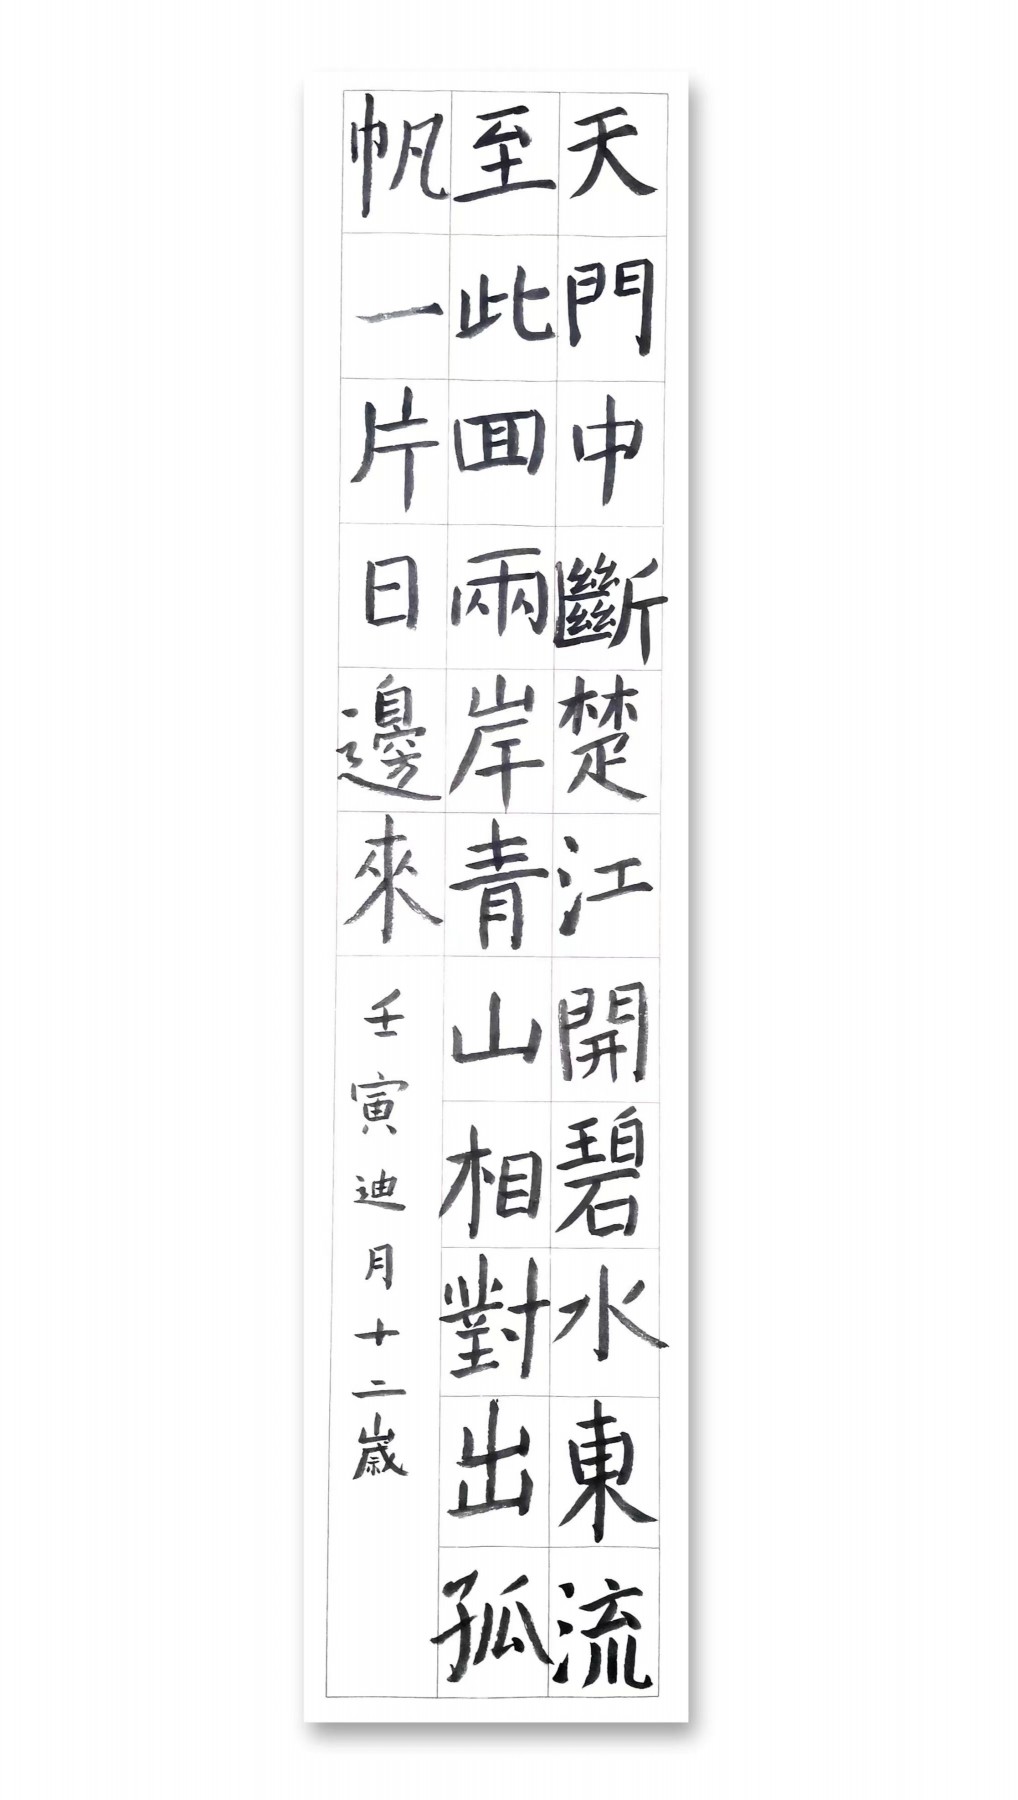 天門中斷楚江開碧水東流
至此回兩岸青山相對出孤
帆一片日邊來
壬寅迪月十二歲